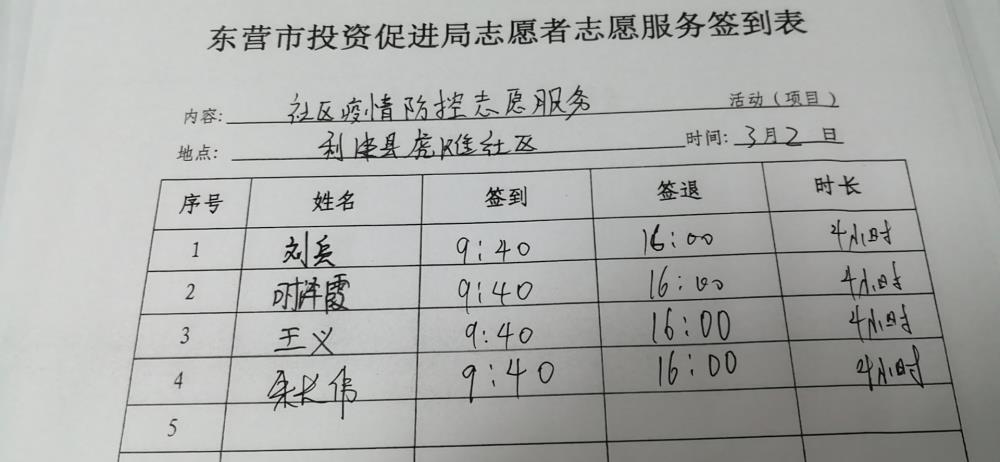 东营市投资促进局志愿者志愿服务签到表
内容: 社区疫情防控志愿服务 活动（项目）
地点: 利津县虎滩社区 时间: 3月2日
序号 姓名 签到 签退 时长
1 刘兵 9:40 16:00 4小时
2 时泽霞 9:40 16:00 4小时
3 王义 9:40 16:00 4小时
4 宋长伟 9:40 16:00 4小时
5